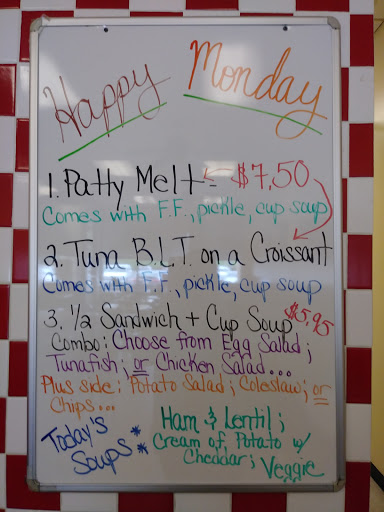 Happy Monday
1. Patty Melt - $7.50
Comes with F.F., pickle, cup soup
2. Tuna B.L.T. on a Croissant
Comes with F.F., pickle, cup soup
3. 1/2 Sandwich + Cup Soup $5.95
Combo: Choose from Egg Salad;
Tunafish; or Chicken Salad...
Plus side: Potato Salad; Coleslaw; or
Chips...
Today's Soups:
Ham & Lentil;
Cream of Potato w/
Cheddar; Veggie